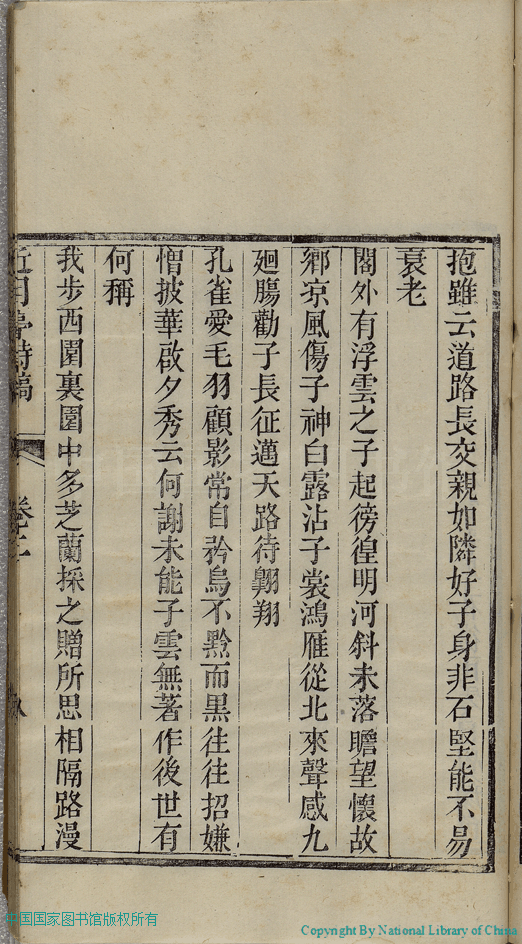 抱雖云道路長交親如隣好子身非石堅能不易
衰老
閣外有浮雲之子起徬徨明河斜未落瞻望懷故
鄉凉風傷子神白露沾子裳鴻雁從北來聲感九
廻腸勸子長征邁天路待翺翔
孔雀愛毛羽顧影常自矜烏不黔而黑往往招嫌
憎披華啟夕秀云何謝未能子雲無著作後世有
何稱
我步西園裏園中多芝蘭採之贈所思相隔路漫
詩稿
中国国家图书馆版权所有
Copyright By National Library of China